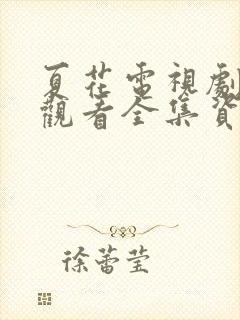 夏花電視劇
觀看全集資
徐蕾莹